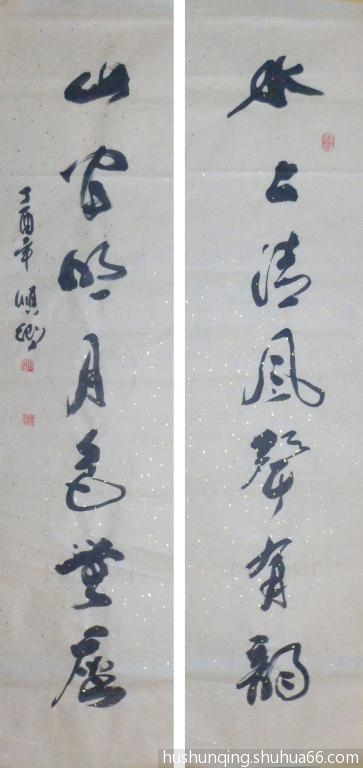 水上清風聲有韻
山间明月色無塵
丁酉年順卿
hushunqing.shuhua66.com